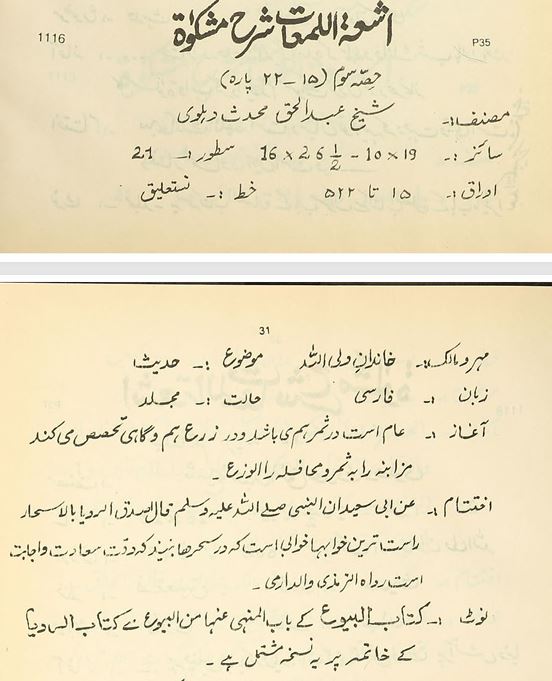 اشعة اللمعات شرح مشکوٰة
1116 P35
حصّہ سوم (۱۵ – ۲۲ پارہ)
مصنف:- شیخ عبدالحق محدث دہلوی
سائز :- 16 x 26 ½ - 10 x 19 سطور :- 21
اوراق :- ۱۵ تا ۵۲۲ خط :- نستعلیق
31
مہر و مالک :- خاندانِ ولی اللہ موضوع :- حدیث
زبان :- فارسی حالت :- مجلد
آغاز :- عام است در ثمر ہم می باشد و در زرع ہم و گاہی تخصص می کند
مزابنہ را بہ ثمر و محاقلہ را الوزع -
اختتام :- عن ابی سعید ان النبی صلے اللہ علیہ وسلم قال اصدق الرویا بالاسحار
راست ترین خوابہا خوابی است کہ در سحرها بنیند کہ وقت سعادت و اجابت
است رواہ الترمذی والدارمی -
نوٹ :- کتاب البیوع کے باب المنہی عنہا من البیوع سے کتاب الرویا
کے خاتمہ پر یہ نسخہ مشتمل ہے -